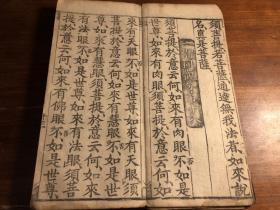 須菩提若菩薩通達無我法者如來說
名真是菩薩
須菩提於意云何如來有肉眼不如是
世尊如來有肉眼須菩提於意云何如
來有天眼不如是世尊如來有天眼須
菩提於意云何如來有慧眼不如是世
尊如來有慧眼須菩提於意云何如來
有法眼不如是世尊如來有法眼須菩
提於意云何如來有佛眼不如是世尊